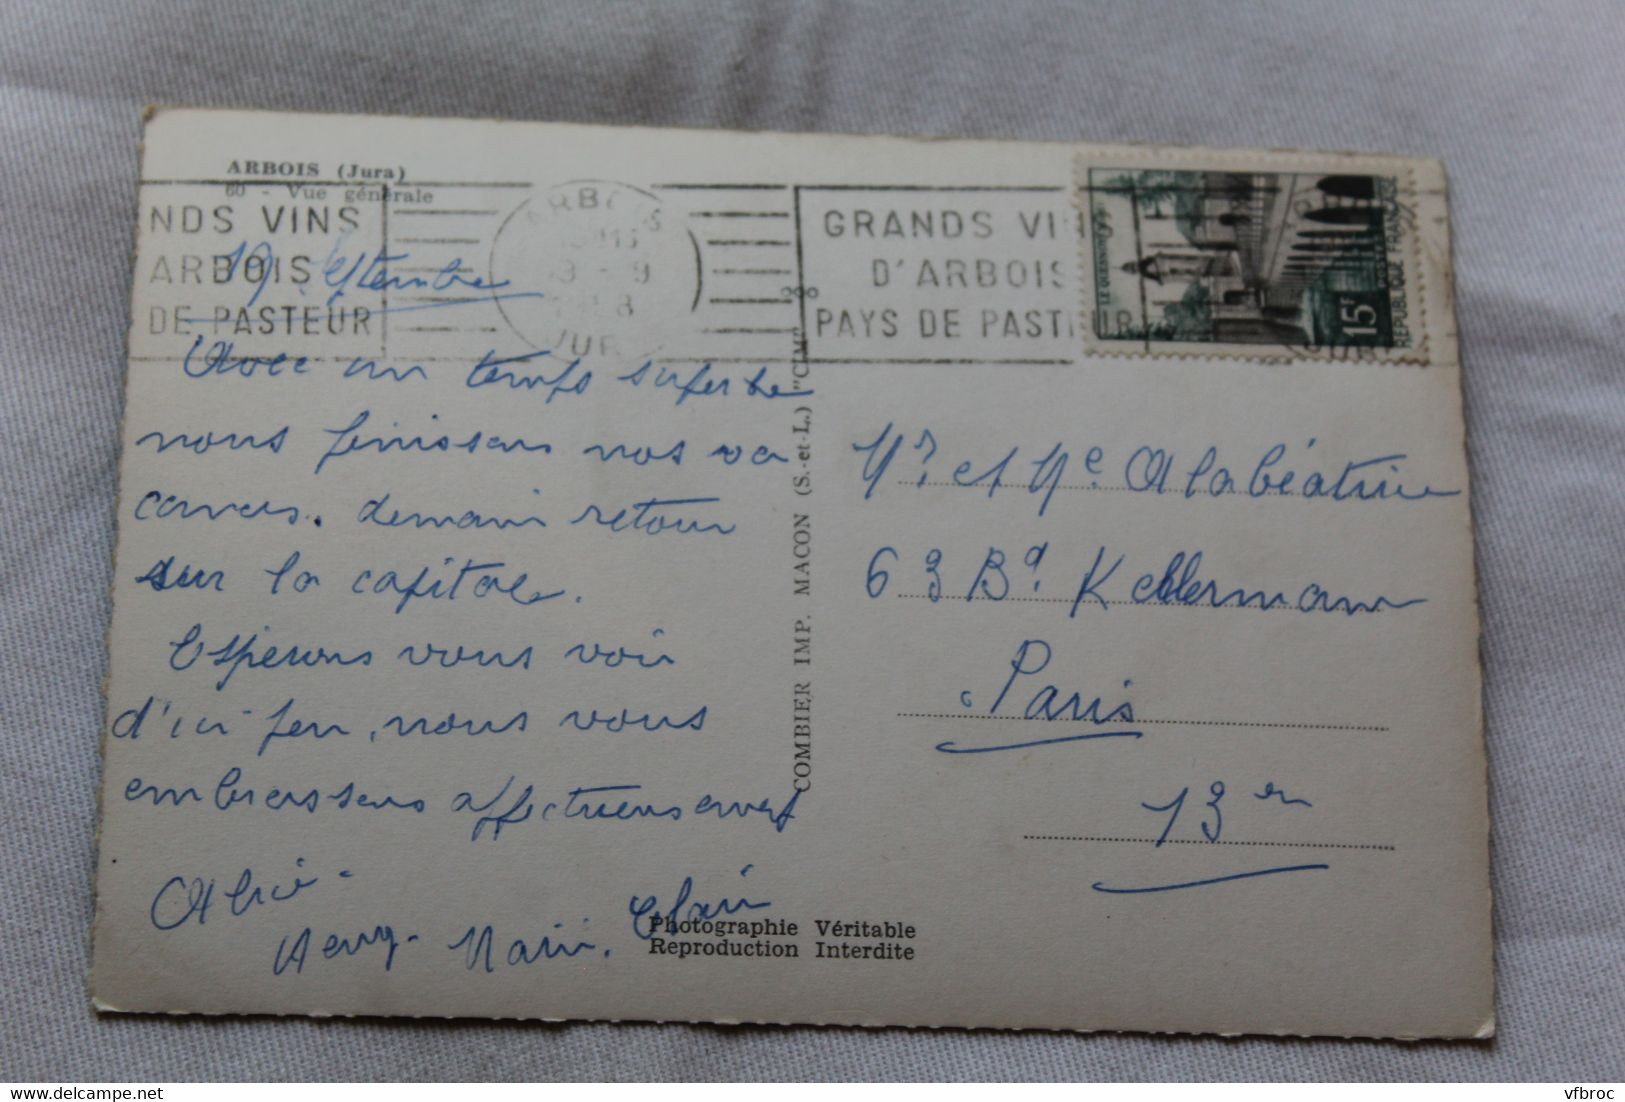 ARBOIS (Jura)
60 - Vue générale
NDS VINS
ARBOIS
DE PASTEUR
ARBOIS
JURA
GRANDS VINS
D'ARBOIS
PAYS DE PASTEUR
LE QUESNOY
15F
POSTES
REPUBLIQUE FRANÇAISE
19 Septembre
Avec un temps superbe
nous finissons nos va
cances. demain retour
sur la capitale.
Espérons vous voir
d'ici peu, nous vous
embrassons affectueusement
Marie. Clair
COMBIER IMP. MACON (S.-et-L.) "CIM"
Photographie Véritable
Reproduction Interdite
Mr et Me Alabéatrice
63 Bd. Kellermann
Paris
13en
vfbroc